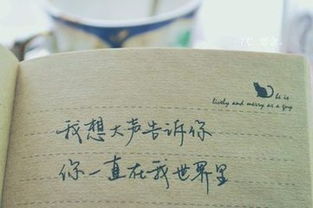 He is
lively and merry as a grig
我想大声告诉你
你一直在我世界里